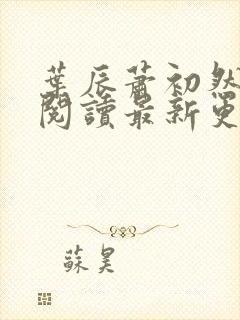 葉辰蕭初然
閱讀最新更
蘇昊